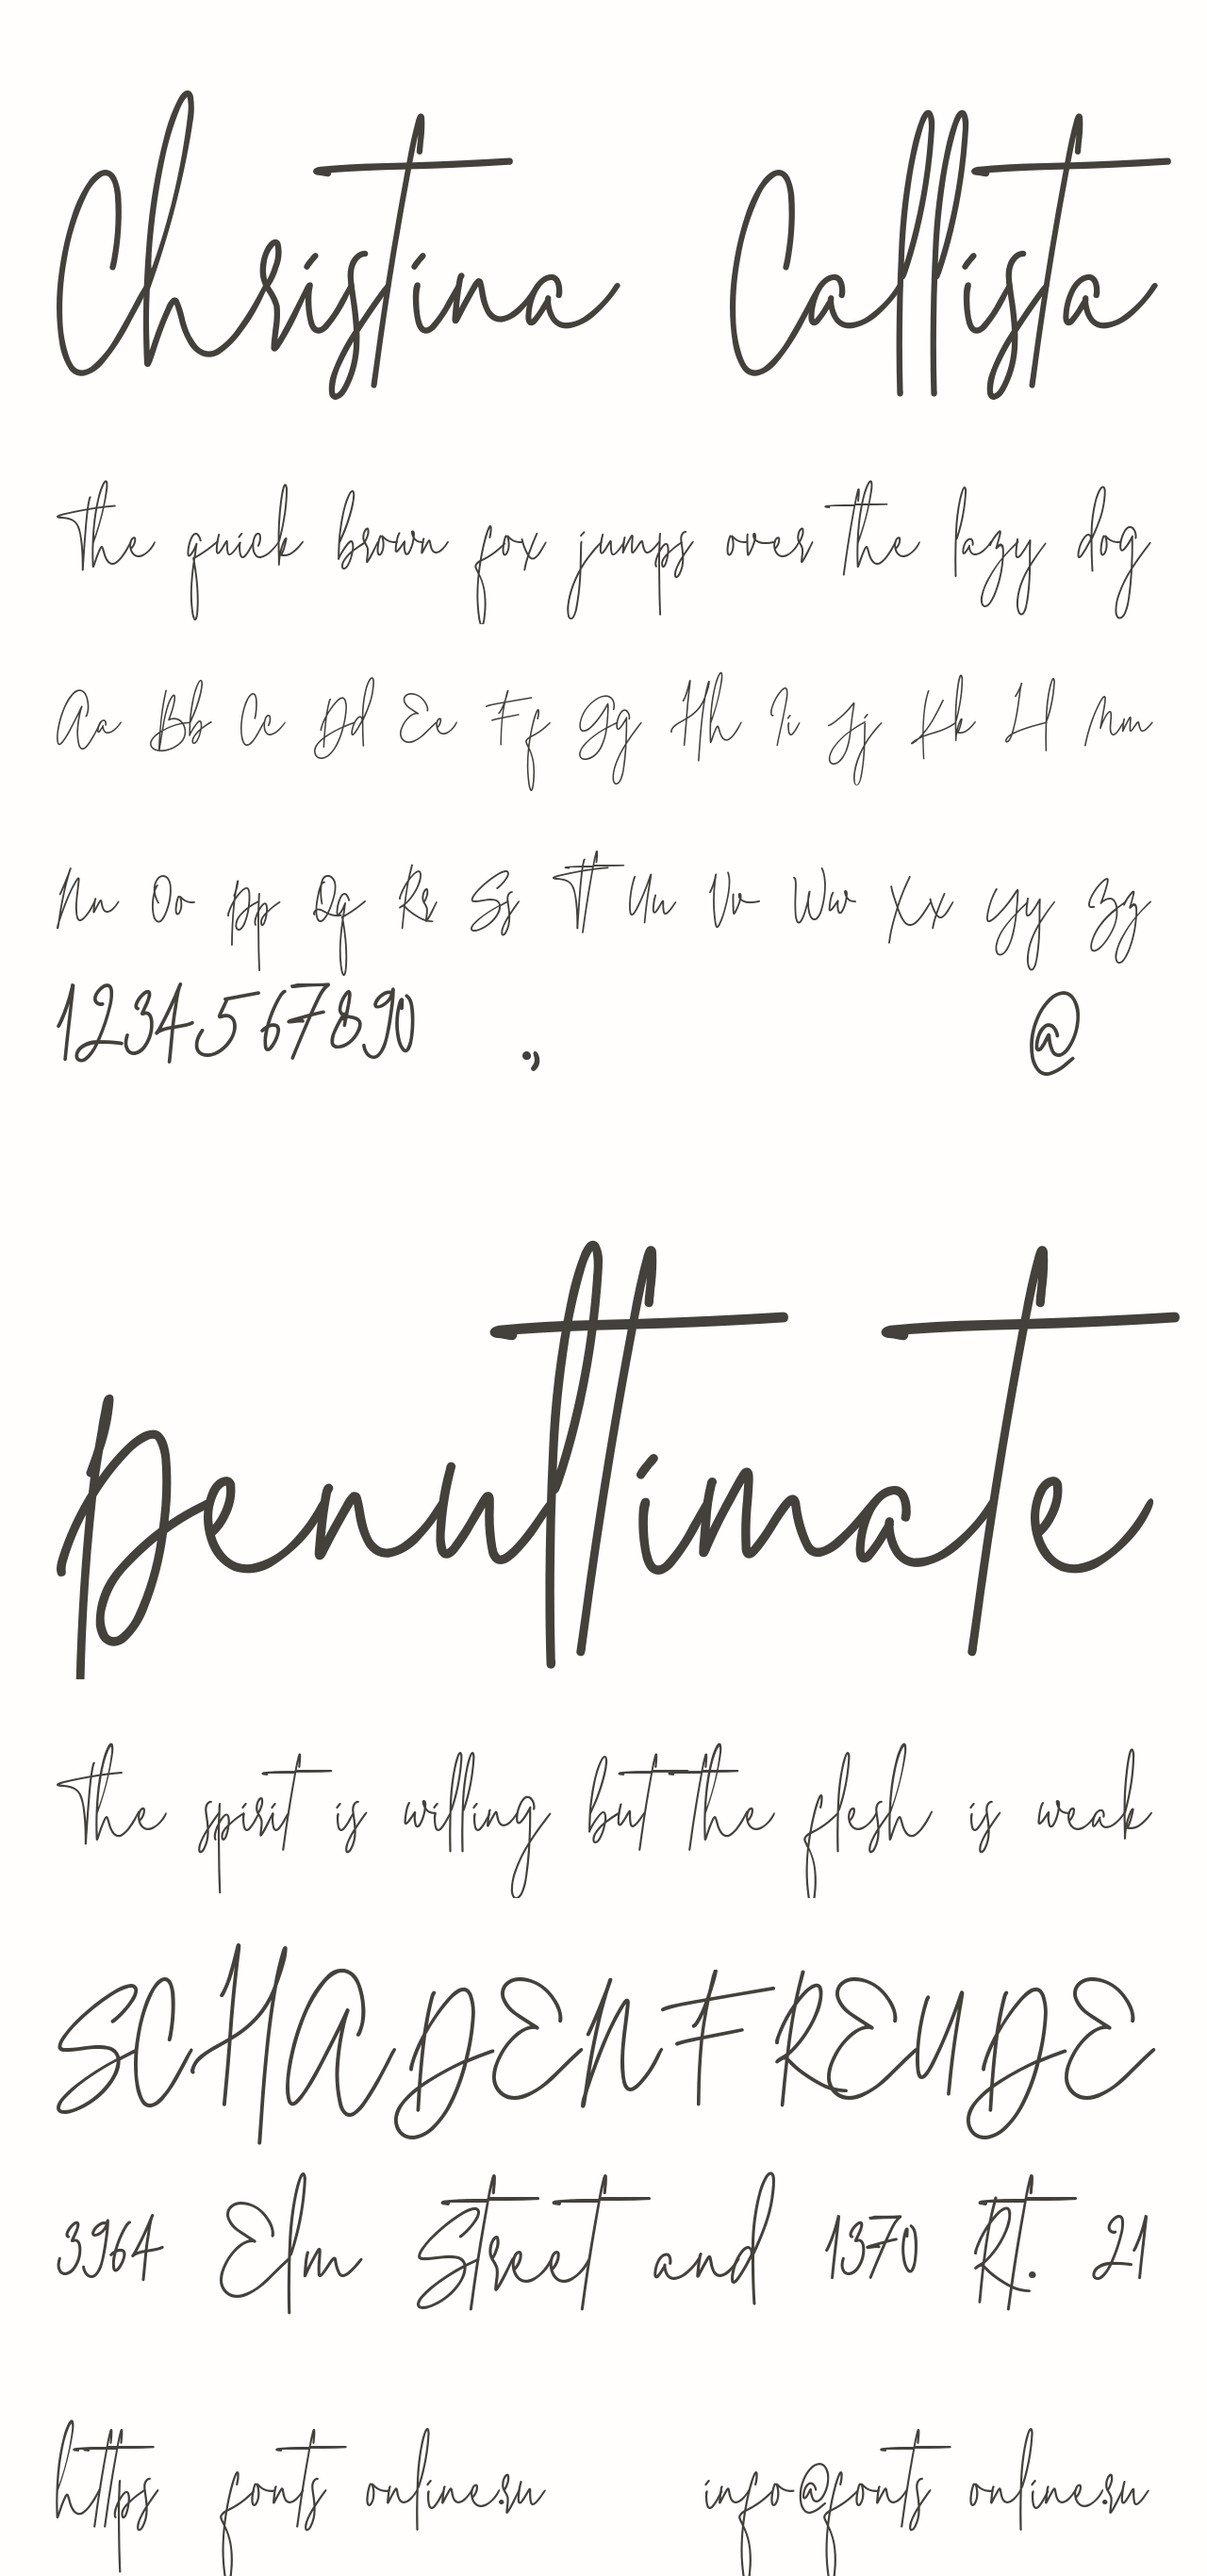 Christina Callista
The quick brown fox jumps over the lazy dog
Aa Bb Cc Dd Ee Ff Gg Hh Ii Jj Kk Ll Mm
Nn Oo Pp Qq Rr Ss Tt Uu Vv Ww Xx Yy Zz
1234567890 ., @
Penultimate
The spirit is willing but the flesh is weak
SCHADENFREUDE
3964 Elm Street and 1370 Rt. 21
https fonts online.ru info@fonts online.ru